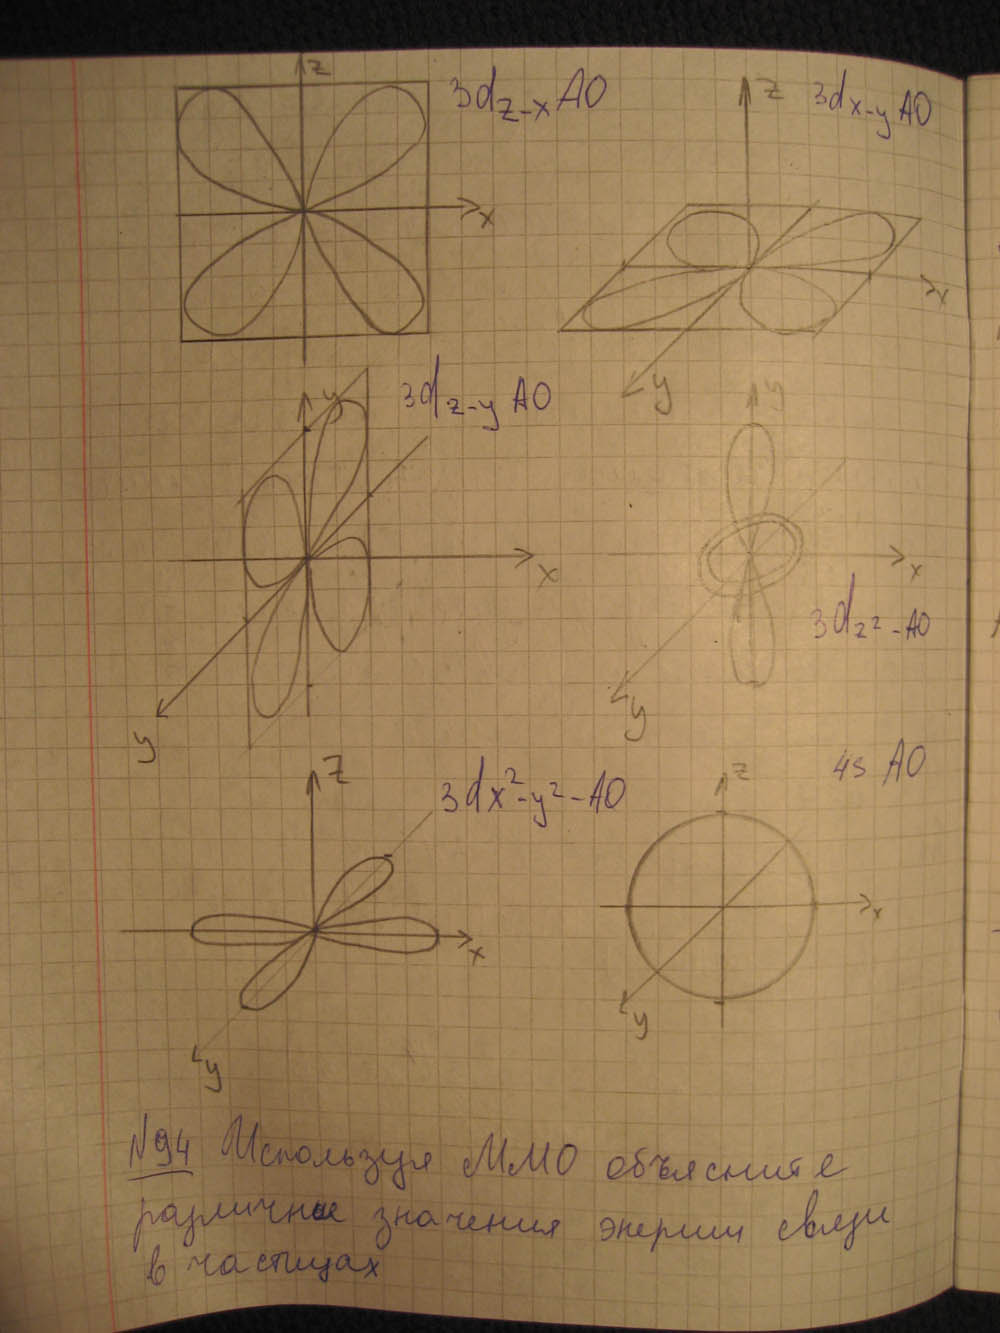 z
3dz-x AO
x
z
3dx-y AO
x
y
y
3dz-y AO
x
y
y
x
3dz² - AO
y
z
3dx²-y² - AO
x
y
z
4s AO
x
y
№94 Используя ММО объясните
различные значения энергии связи
в частицах